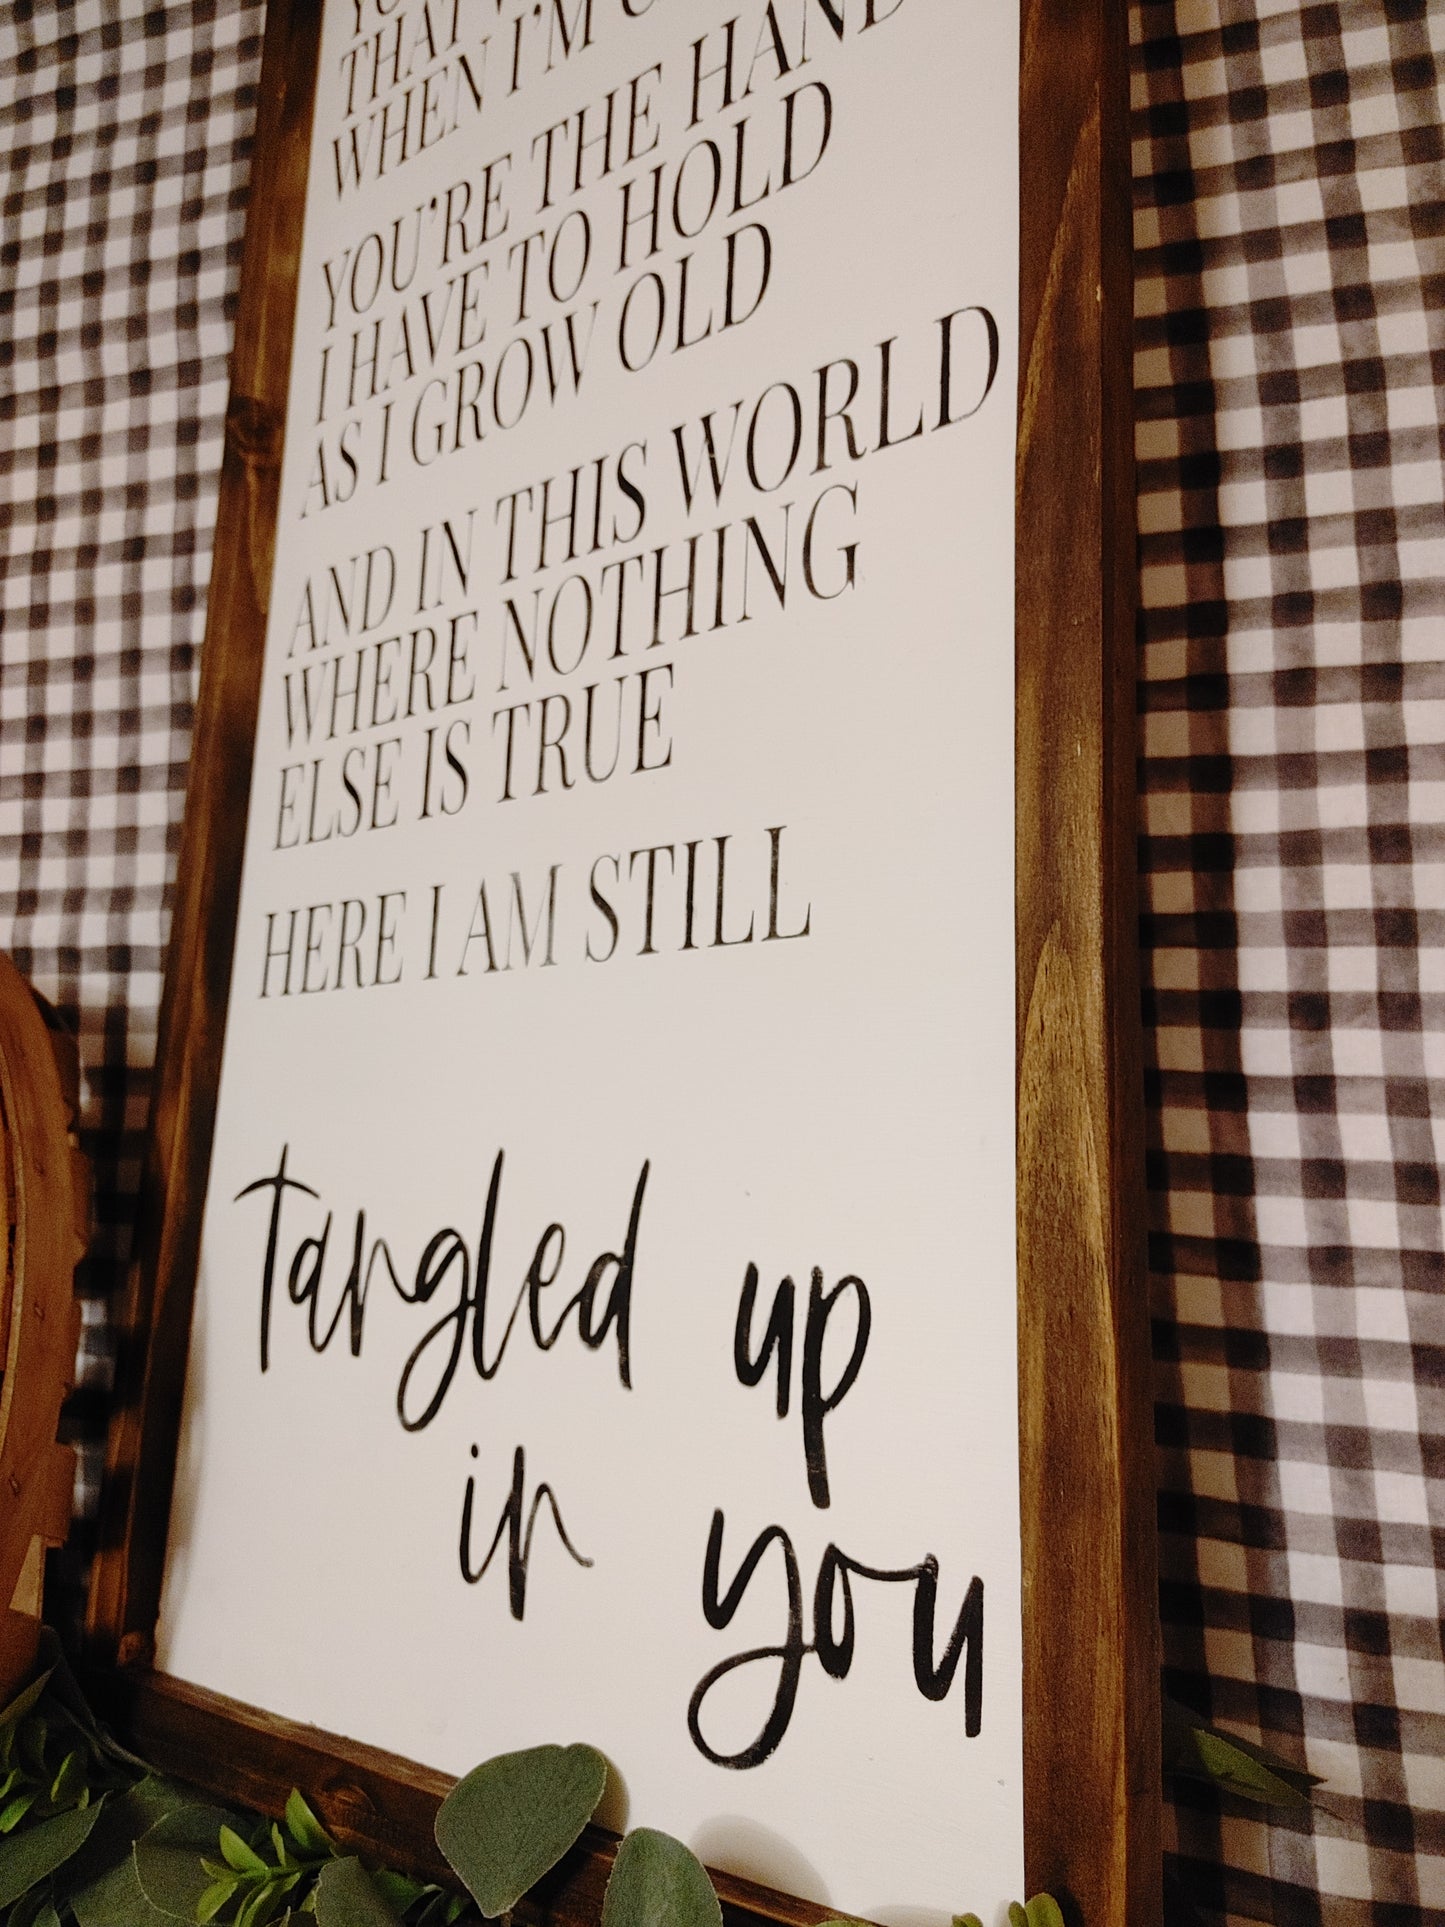 THAT
WHEN I'M
YOU'RE THE HAND
I HAVE TO HOLD
AS I GROW OLD
AND IN THIS WORLD
WHERE NOTHING
ELSE IS TRUE
HERE I AM STILL
tangled up
in you